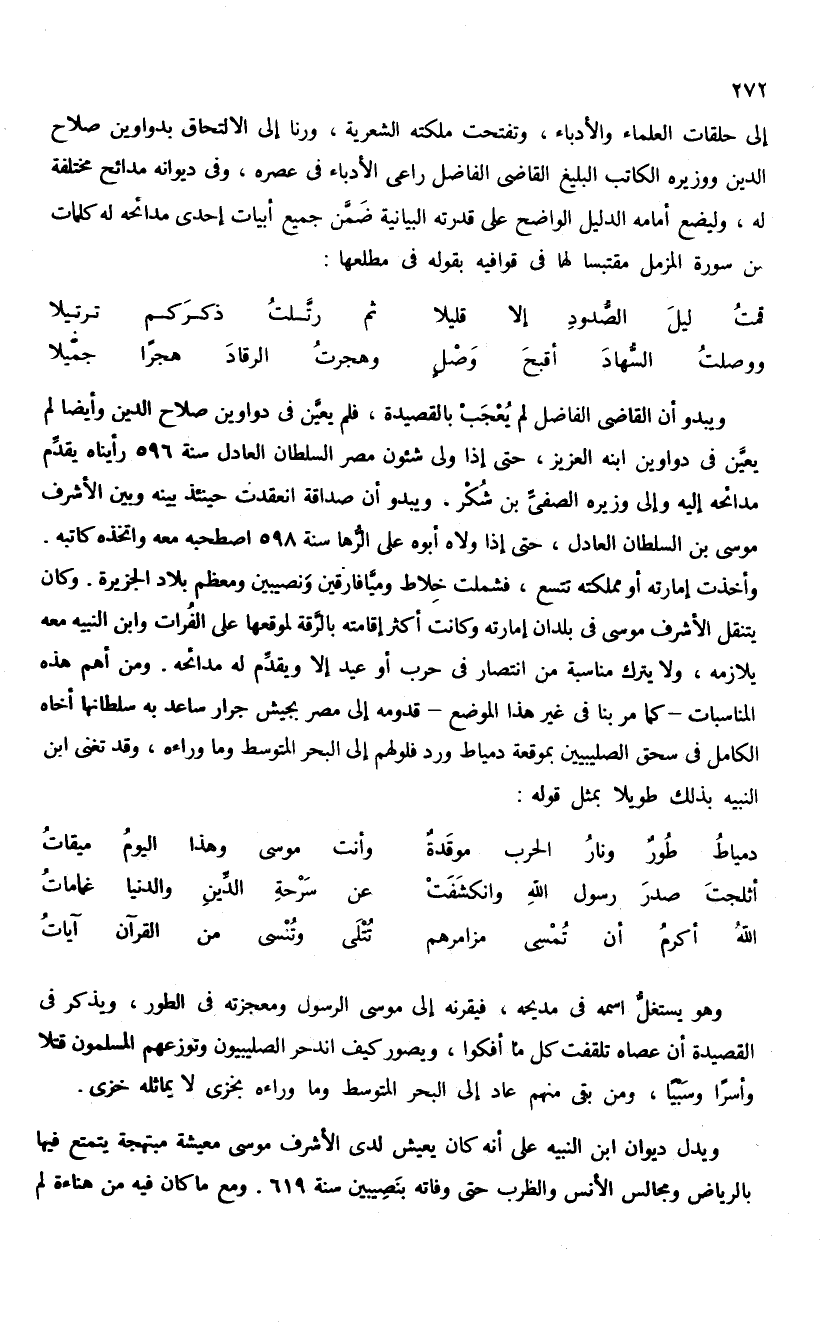 ٢٧٢
إلى حلقات العلماء والأدباء ، وتفتحت ملكته الشعرية ، ورنا إلى الالتحاق بدواوين صلاح
الدين ووزيره الكاتب البليغ القاضى الفاضل راعى الأدباء فى عصره ، وفى ديوانه مدائح مختلفة
له ، وليضع أمامه الدليل الواضح على قدرته البيانية ضَمَّن جميع أبيات إحدى مدائحه له كلمات
من سورة المزمل مقتبسا لها فى قوافيه بقوله فى مطلعها :
قمتُ ليلَ الصُّدودِ إلا قليلا ثم رتَّلتُ ذكرَكم ترتيلا
ووصلتُ السُّهادَ أقبحَ وَصْلٍ وهجرتُ الرقادَ هجرًا جميلا
ويبدو أن القاضى الفاضل لم يُعْجَبْ بالقصيدة ، فلم يعيَّن فى دواوين صلاح الدين وأيضا لم
يعيَّن فى دواوين ابنه العزيز ، حتى إذا ولى شئون مصر السلطان العادل سنة ٥٩٦ رأيناه يقدِّم
مدائحه إليه وإلى وزيره الصفىِّ بن شُكْر . ويبدو أن صداقة انعقدت حينئذ بينه وبين الأشرف
موسى بن السلطان العادل ، حتى إذا ولاه أبوه على الرُّها سنة ٥٩٨ اصطحبه معه واتخذه كاتبه .
وأخذت إمارته أو مملكته تتسع ، فشملت خِلاط وميَّافارقين وَنصيبين ومعظم بلاد الجزيرة . وكان
يتنقل الأشرف موسى فى بلدان إمارته وكانت أكثر إقامته بالرَّقة لموقعها على الفُرات وابن النبيه معه
يلازمه ، ولا يترك مناسبة من انتصار فى حرب أو عيد إلا ويقدِّم له مدائحه . ومن أهم هذه
المناسبات – كما مر بنا فى غير هذا الموضع – قدومه إلى مصر بجيش جرار ساعد به سلطانها أخاه
الكامل فى سحق الصليبيين بموقعة دمياط ورد فلولهم إلى البحر المتوسط وما وراءه ، وقد تغنى ابن
النبيه بذلك طويلا بمثل قوله :
دمياطُ طُورٌ ونارُ الحرب موقَدةٌ وأنت موسى وهذا اليومُ ميقاتُ
أثلجتَ صدرَ رسول اللهِ وانكشَفَتْ عن سَرْحةِ الدِّينِ والدنيا غماماتُ
اللهُ أكرمُ أن تُمْسِى مزامرهم تُتْلَى وتُنْسى من القرآن آياتُ
وهو يستغلُّ اسمه فى مديحه ، فيقرنه إلى موسى الرسول ومعجزته فى الطور ، ويذكر فى
القصيدة أن عصاه تلقفت كل ما أفكوا ، ويصور كيف اندحر الصليبيون وتوزعهم المسلمون قتلا
وأسرًا وسَبْيًا ، ومن بقى منهم عاد إلى البحر المتوسط وما وراءه بخزى لا يماثله خزى .
ويدل ديوان ابن النبيه على أنه كان يعيش لدى الأشرف موسى معيشة مبتهجة يتمتع فيها
بالرياض ومجالس الأنس والظرب حتى وفاته بنَصِيبين سنة ٦١٩ . ومع ما كان فيه من هناءة لم